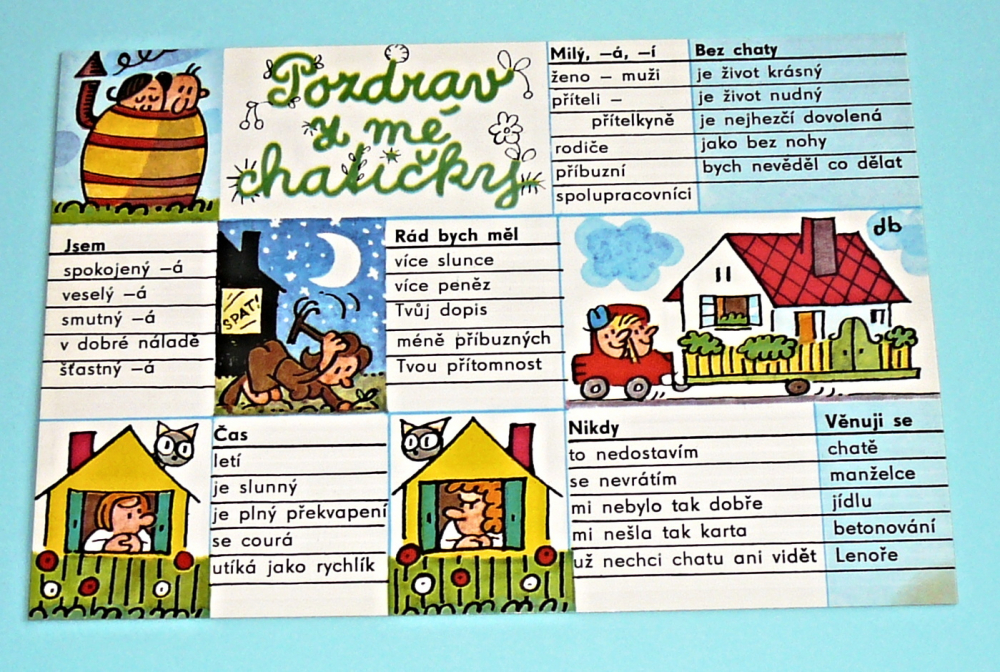 Pozdrav
z mé
chatičky
Milý, –á, –í
ženo – muži
příteli –
přítelkyně
rodiče
příbuzní
spolupracovníci
Bez chaty
je život krásný
je život nudný
je nejhezčí dovolená
jako bez nohy
bych nevěděl co dělat
Jsem
spokojený –á
veselý –á
smutný –á
v dobré náladě
šťastný –á
SPAT!
Rád bych měl
více slunce
více peněz
Tvůj dopis
méně příbuzných
Tvou přítomnost
db
Čas
letí
je slunný
je plný překvapení
se courá
utíká jako rychlík
Nikdy
to nedostavím
se nevrátím
mi nebylo tak dobře
mi nešla tak karta
už nechci chatu ani vidět
Věnuji se
chatě
manželce
jídlu
betonování
Lenoře